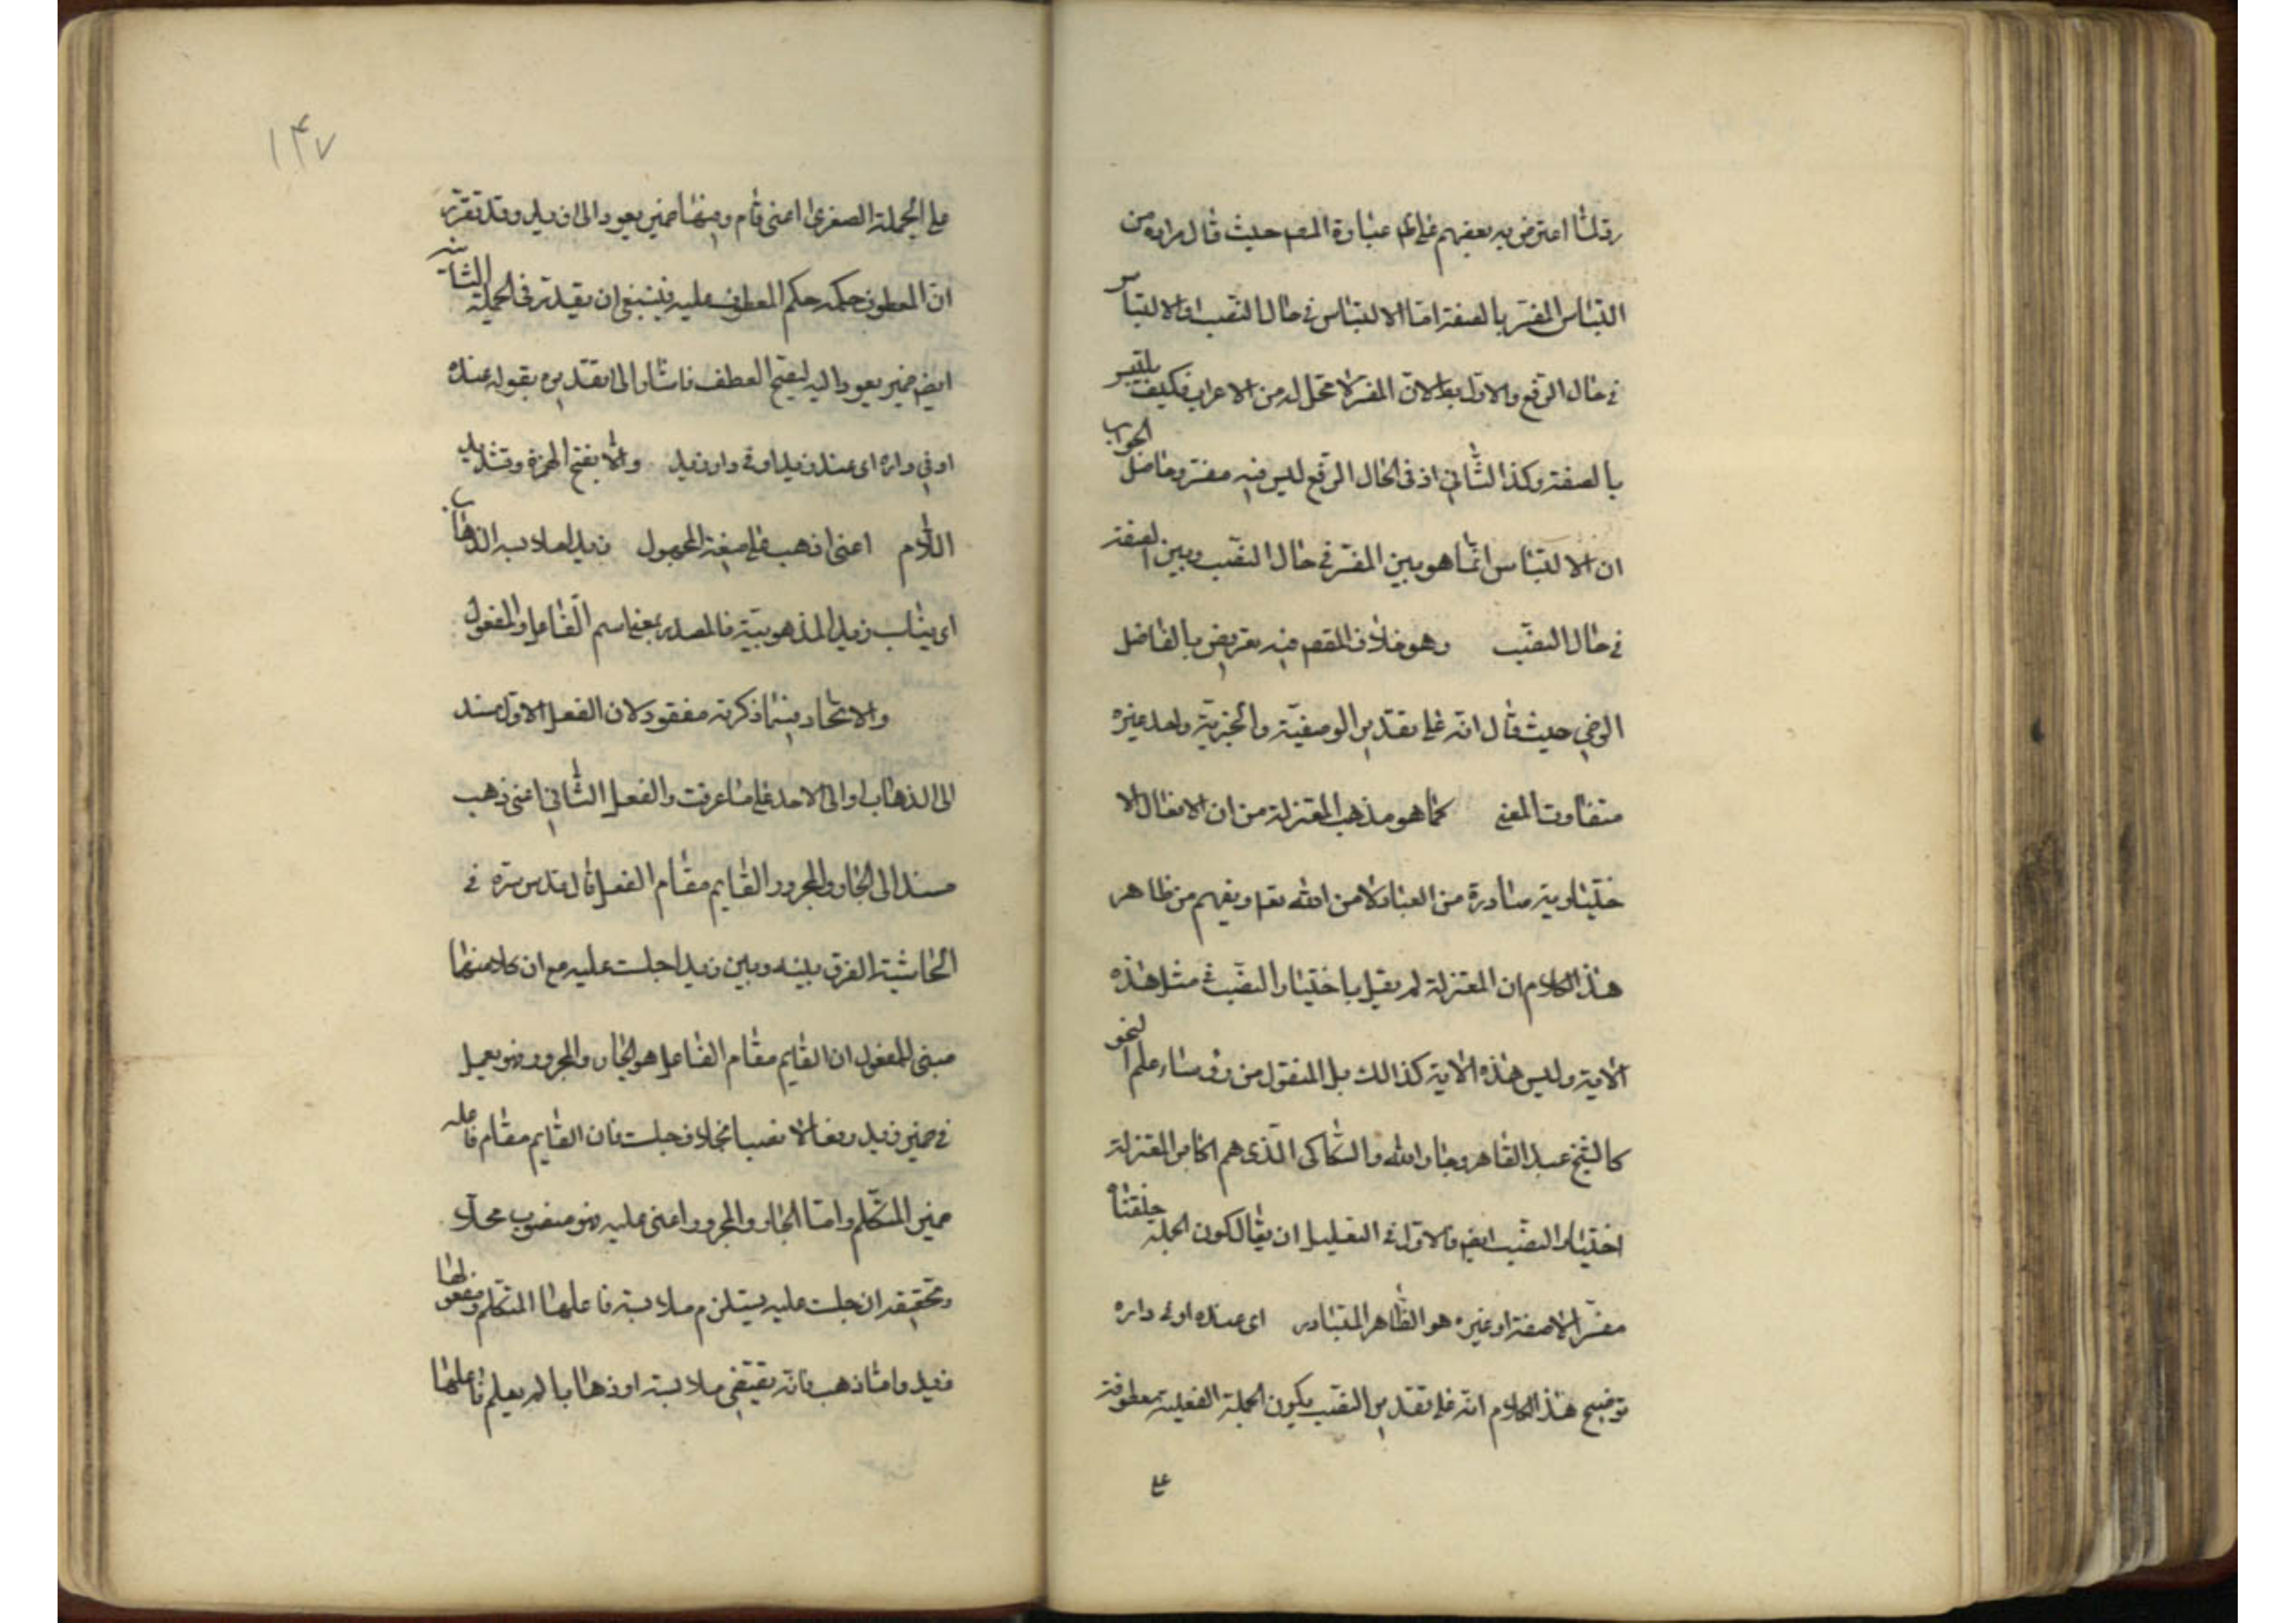 رة لما اعترض به بعضهم على عبارة المص حيث قال مراده من
التباس المفسر بالصفة اما الالتباس فى حال النصب او الالتباس
فى حال الرفع والاول بط لان المفسر لا محل له من الاعراب فكيف يلتبس
بالصفة وكذا الثانى اذ فى الحال الرفع ليس فيه مفسر وحاصل الجواب
ان الالتباس انما هو بين المفسر فى حال النصب وبين الصفة
فى حال النصب وهو خلاف المقص فيه تعريض بالفاضل
الرضى حيث قال انه على تقدير الوصفية والخبرية واحد غيره
متفاوت المعنى كما هو مذهب المعتزلة من ان الافعال الا
ختيارية صادرة من العباد لا من الله تعا ويفهم من ظاهر
هذا الكلام ان المعتزلة لم يقبل باختيار النصب فى مثل هذه
الاية وليس هذه الاية كذالك بل المنقول من رؤساء علم النحو
كالشيخ عبد القاهر وجار الله والسكاكى الذى هم اكابر المعتزلة
اختيار النصب ايض والاولى فى التعليل ان يقال لكون الجملة خلقناه
مفسرا لا صفة او غيره هو الظاهر المتبادر اى عنده او فى داره
توضيح هذا الكلام انه على تقدير النصب يكون الجملة الفعلية معطوفة
على
١۴٧
على الجملة الصغرى اعنى قام وفيها ضمير يعود الى زيد وقد تقرر
ان المعطوف حكمه حكم المعطوف عليه فينبغى ان يقيد فى الجملة الثانية
ايض ضمير يعود اليه ليصح العطف فاشار الى تقديره بقوله عنده
او فى داره اى عند زيد او فى دار زيد والا بفتح الهمزة وتشديد
اللام اعنى اذهب على صيغة المجهول زيدا ملابسه الذهاب
اى يناسب زيد المذهوبية فالمصدر بمعنى اسم الفاعل او المفعول
والاتحاد فيما ذكرته مفقود لان الفعل الاول مسند
الى الذهاب او الى الاحد على ما عرفت والفعل الثانى اعنى ذهب
مسند الى الجار والمجرور القايم مقام الفعل قال قدس سره فى
الحاشية الفرق بينه وبين زيدا جلست عليه مع ان كلا منهما
مبنى للمفعول ان القايم مقام الفاعل هو الجار والمجرور فهو يعمل
فى ضمير زيد رفعا لا نصبا بخلاف جلست فان القايم مقام فاعله
ضمير المتكلم واما الجار والمجرور اعنى عليه فهو منصوب محلا
وتحقيقه ان جلست عليه يستلزم ملابسة فاعلها المتكلم ومفعولها
زيد واما ذهب فانه يقتضى ملابسة اوذهابا لم يعلم فاعلها